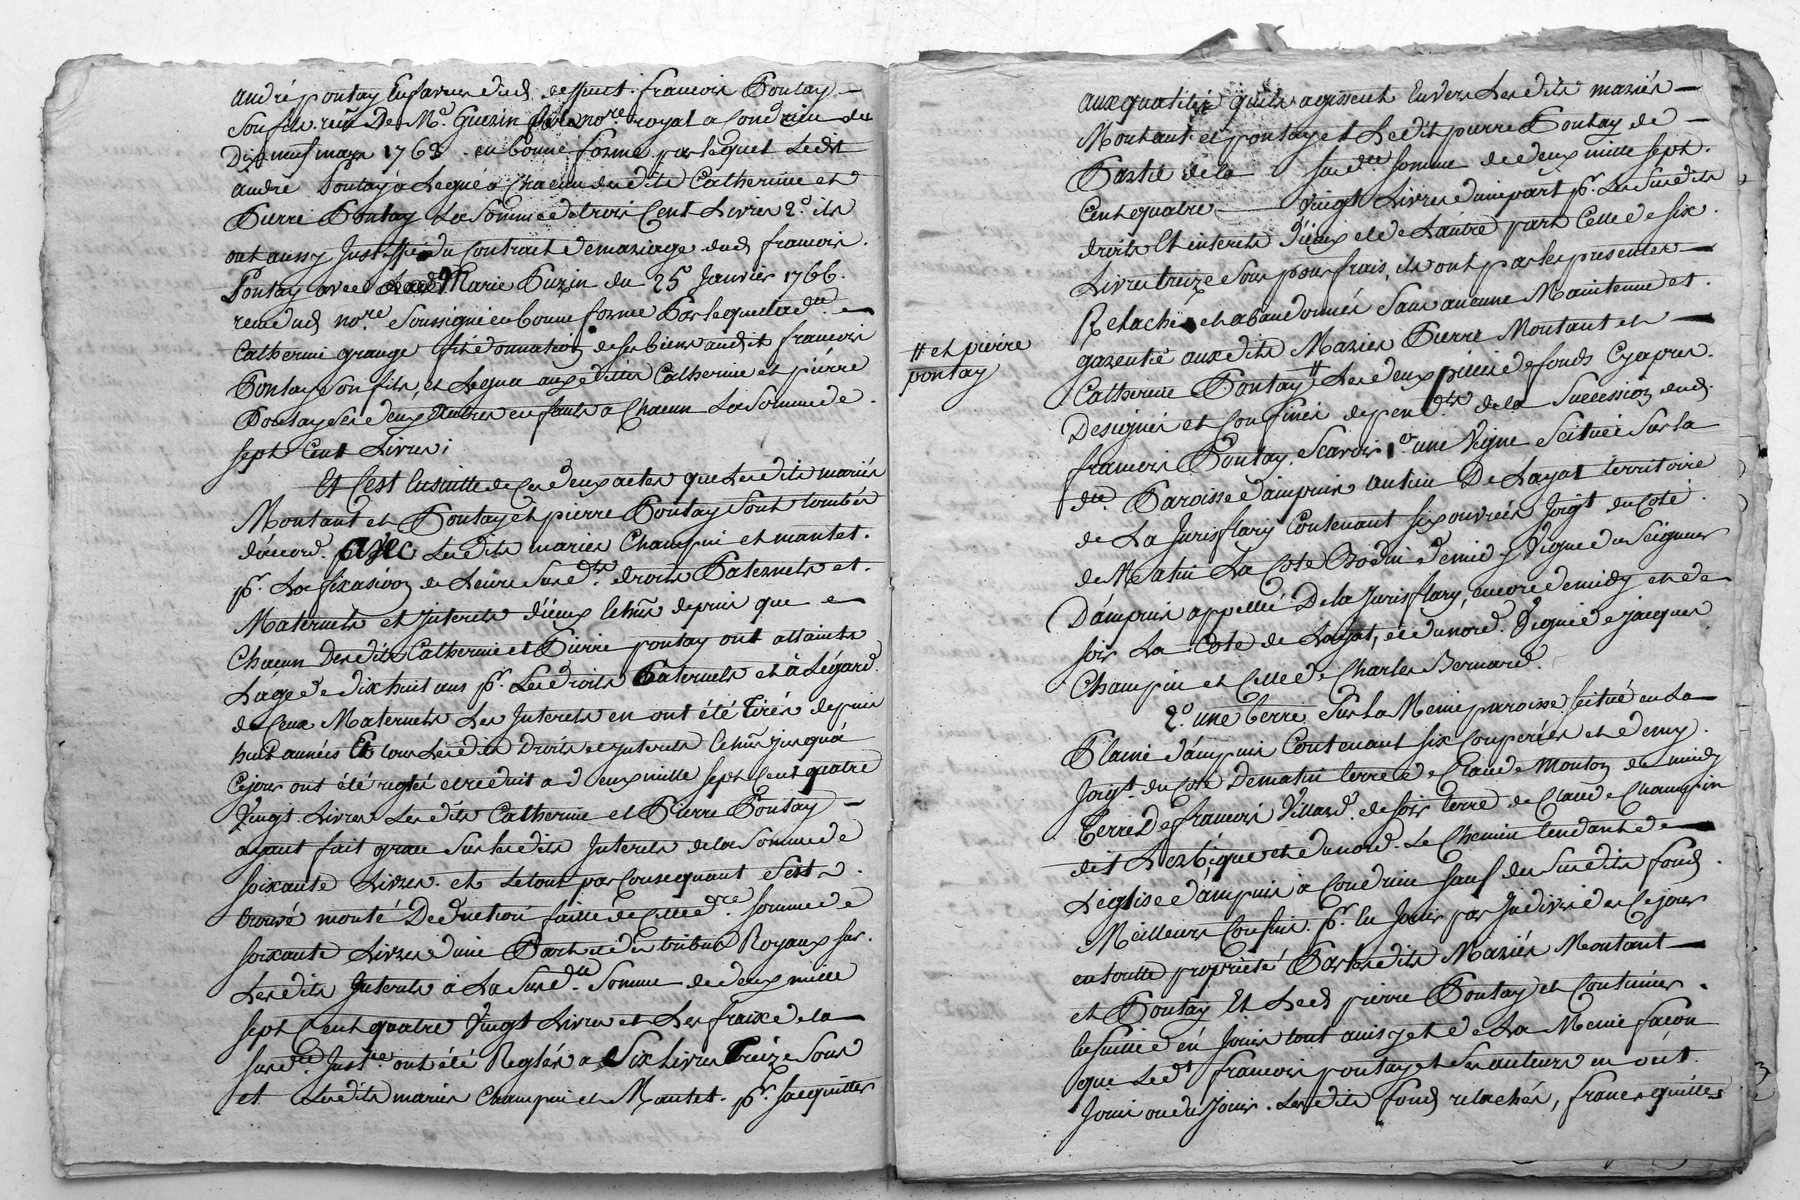 andré pontay Enfaveur dud. deffunt. francois Pontay —
son fils. reçu De Me. Guerin nore. royal a Condrieu du
Dix neuf mars 1763. en bonne forme par lequel Ledit
andré Pontay a Legué a Chacun desdits Catherine et
Pierre Pontay La Somme de trois Cent Livres 2o. ils
ont aussy Justiffié du Contract de mariage dud. francois.
Pontay avec Marie Puzin du 25 Janvier 1766.
recu dud. nore. soussigné en bonne forme Par lequel lade. —
Catherine grange fit donnation de ses biens audit francois
Pontay son fils, et Legua auxdits Catherine et piérre
Pontay ses deux autres enfants a Chacun La Somme de.
sept Cent Livres;
Et C'est Ensuitte de Ces deux actes que Lesdits mariés
Montant et Pontay et pierre Pontay Sont tombés
d'acord. avec Lesdits mariés Champin et mantet.
pr. La fixasion de Leurs Susdts. droits Paternels et.
Maternels et Interets d'iceux Echus depuis que —
Chacun Desdits Catherine et Pierre pontay ont attaints
L'age de dix huit ans pr. Les droits Paternels et à L'égard
de Ceux Maternels Les Interets en ont été tirés depuis
huit années Et tous Lesdits droits et Interets Echus jusqu'a
Ce jour ont été reglés et reduit a deux mille sept Cent quatre
Vingt Livres Lesdits Catherine et Pierre Pontay —
ayant fait grace Sur lesdits Interets de la Somme de
soixante Livres. et Le tout par Consequant s'est
trouvé monté Deduction faitte de Cette dre. somme de
soixante Livres d'une Part et des tribus Royaux sur.
Lesdits Interets à La Susde. Somme de deux mille
sept Cent quatre Vingt Livres et Les fraix de la
susde. Juste. ont été Reglés a Six Livres Treize Sous
et Lesdits mariés Champin et Mantet. pr. sacquitter
aux qualités quils agissent Envers Lesdits mariés —
Montant et pontay et Ledit pierre Pontay de —
Partie de la susdte somme de deux mille sept.
Cent quatre — Vingt Livres d'une part pr. Les Susdits
droits Et interets d'iceux et de L'autre part Celle de six.
Livres treize Sous pour frais, ils ont par les presentes —
Relaché et abandonné Sans aucune Maintenue et.
garentie auxdits Mariés Pierre Montant et —
Catherine Pontay # Les deux pieces de fonds Cy apres.
# et piérre
pontay
Designés et Confinés dependts. de la Succession dud.
francois Pontay. Scavoir 1o. une Vigne Scituée Sur la
de. Paroisse d'ampuis au lieu De Layat territoire
de La Jurisflary Contenant six ouvrées Joigt du Coté
de Matin La Cote Bodin de midy Vigne du Seigneur
D'ampuis appellée De la Jurisflary, encore de midy et de
soir La Cote de Layat, et du nord. Vigne de jacques
Champin et Celle de Charles Bernard.
2o. une terre Sur La Meme paroisse scitué en La —
Plaine d'ampuis Contenant six Couperées et demy.
Joigt. du Coté De matin terre de Claude Monton de midy
Terre De francois Villard. de soir terre de Claude Champin
dit L'Evêque et du nord. Le Chemin tendant de —
L'église d'ampuis à Condrieu sauf des Susdits fonds
Meilleurs Confins. pr. En Jouir par Indivis des Ce jour
en toutte propriété Par lesdits Mariés Montant —
et Pontay Et Led. pierre Pontay et Continuer.
Ensuitte d'en Jouir tout ainsy et de La Meme façon
que Ledt. francois pontay et Ses auteurs en ont.
Joui ou du Jouir. Lesdits fonds relachés, francs quittes